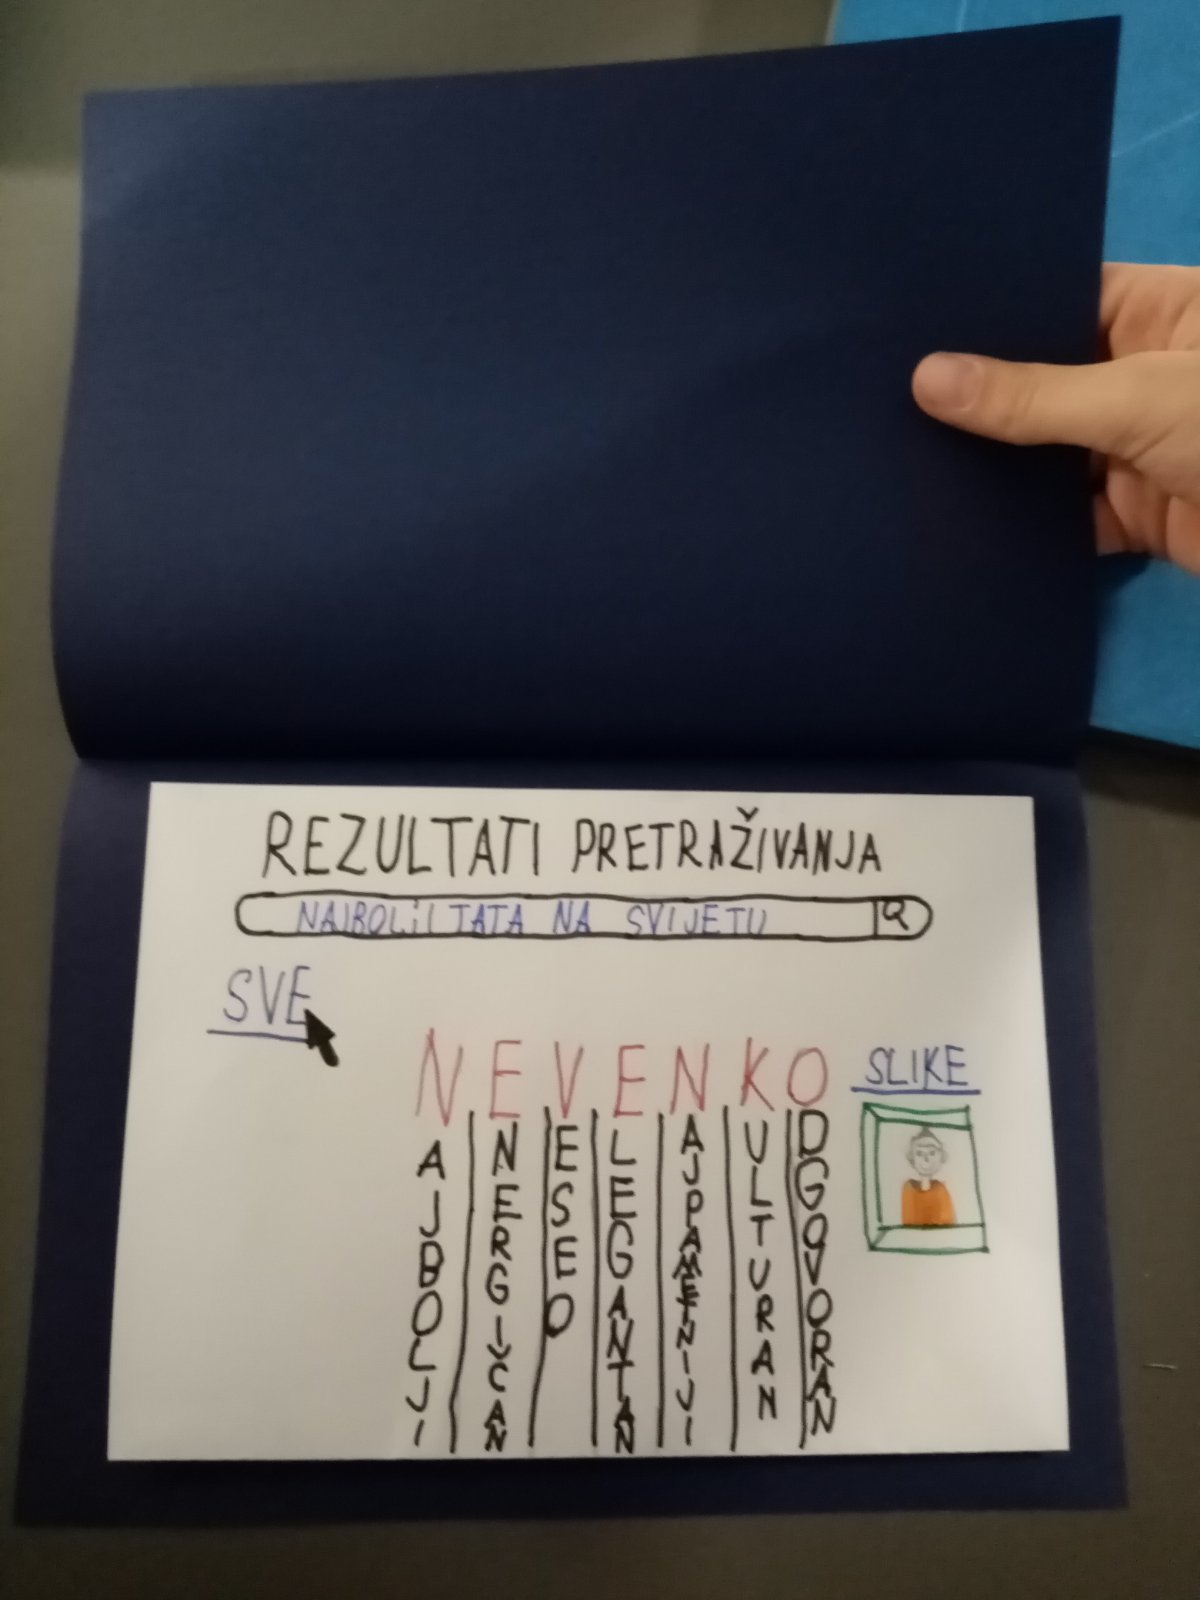 REZULTATI PRETRAŽIVANJA
NAJBOLJI TATA NA SVIJETU
SVE
NEVENKO
AJBOLJI
NERGIČAN
ESEO
LEGANTAN
AJPAMETNIJI
ULTURAN
DGOVORAN
SLIKE